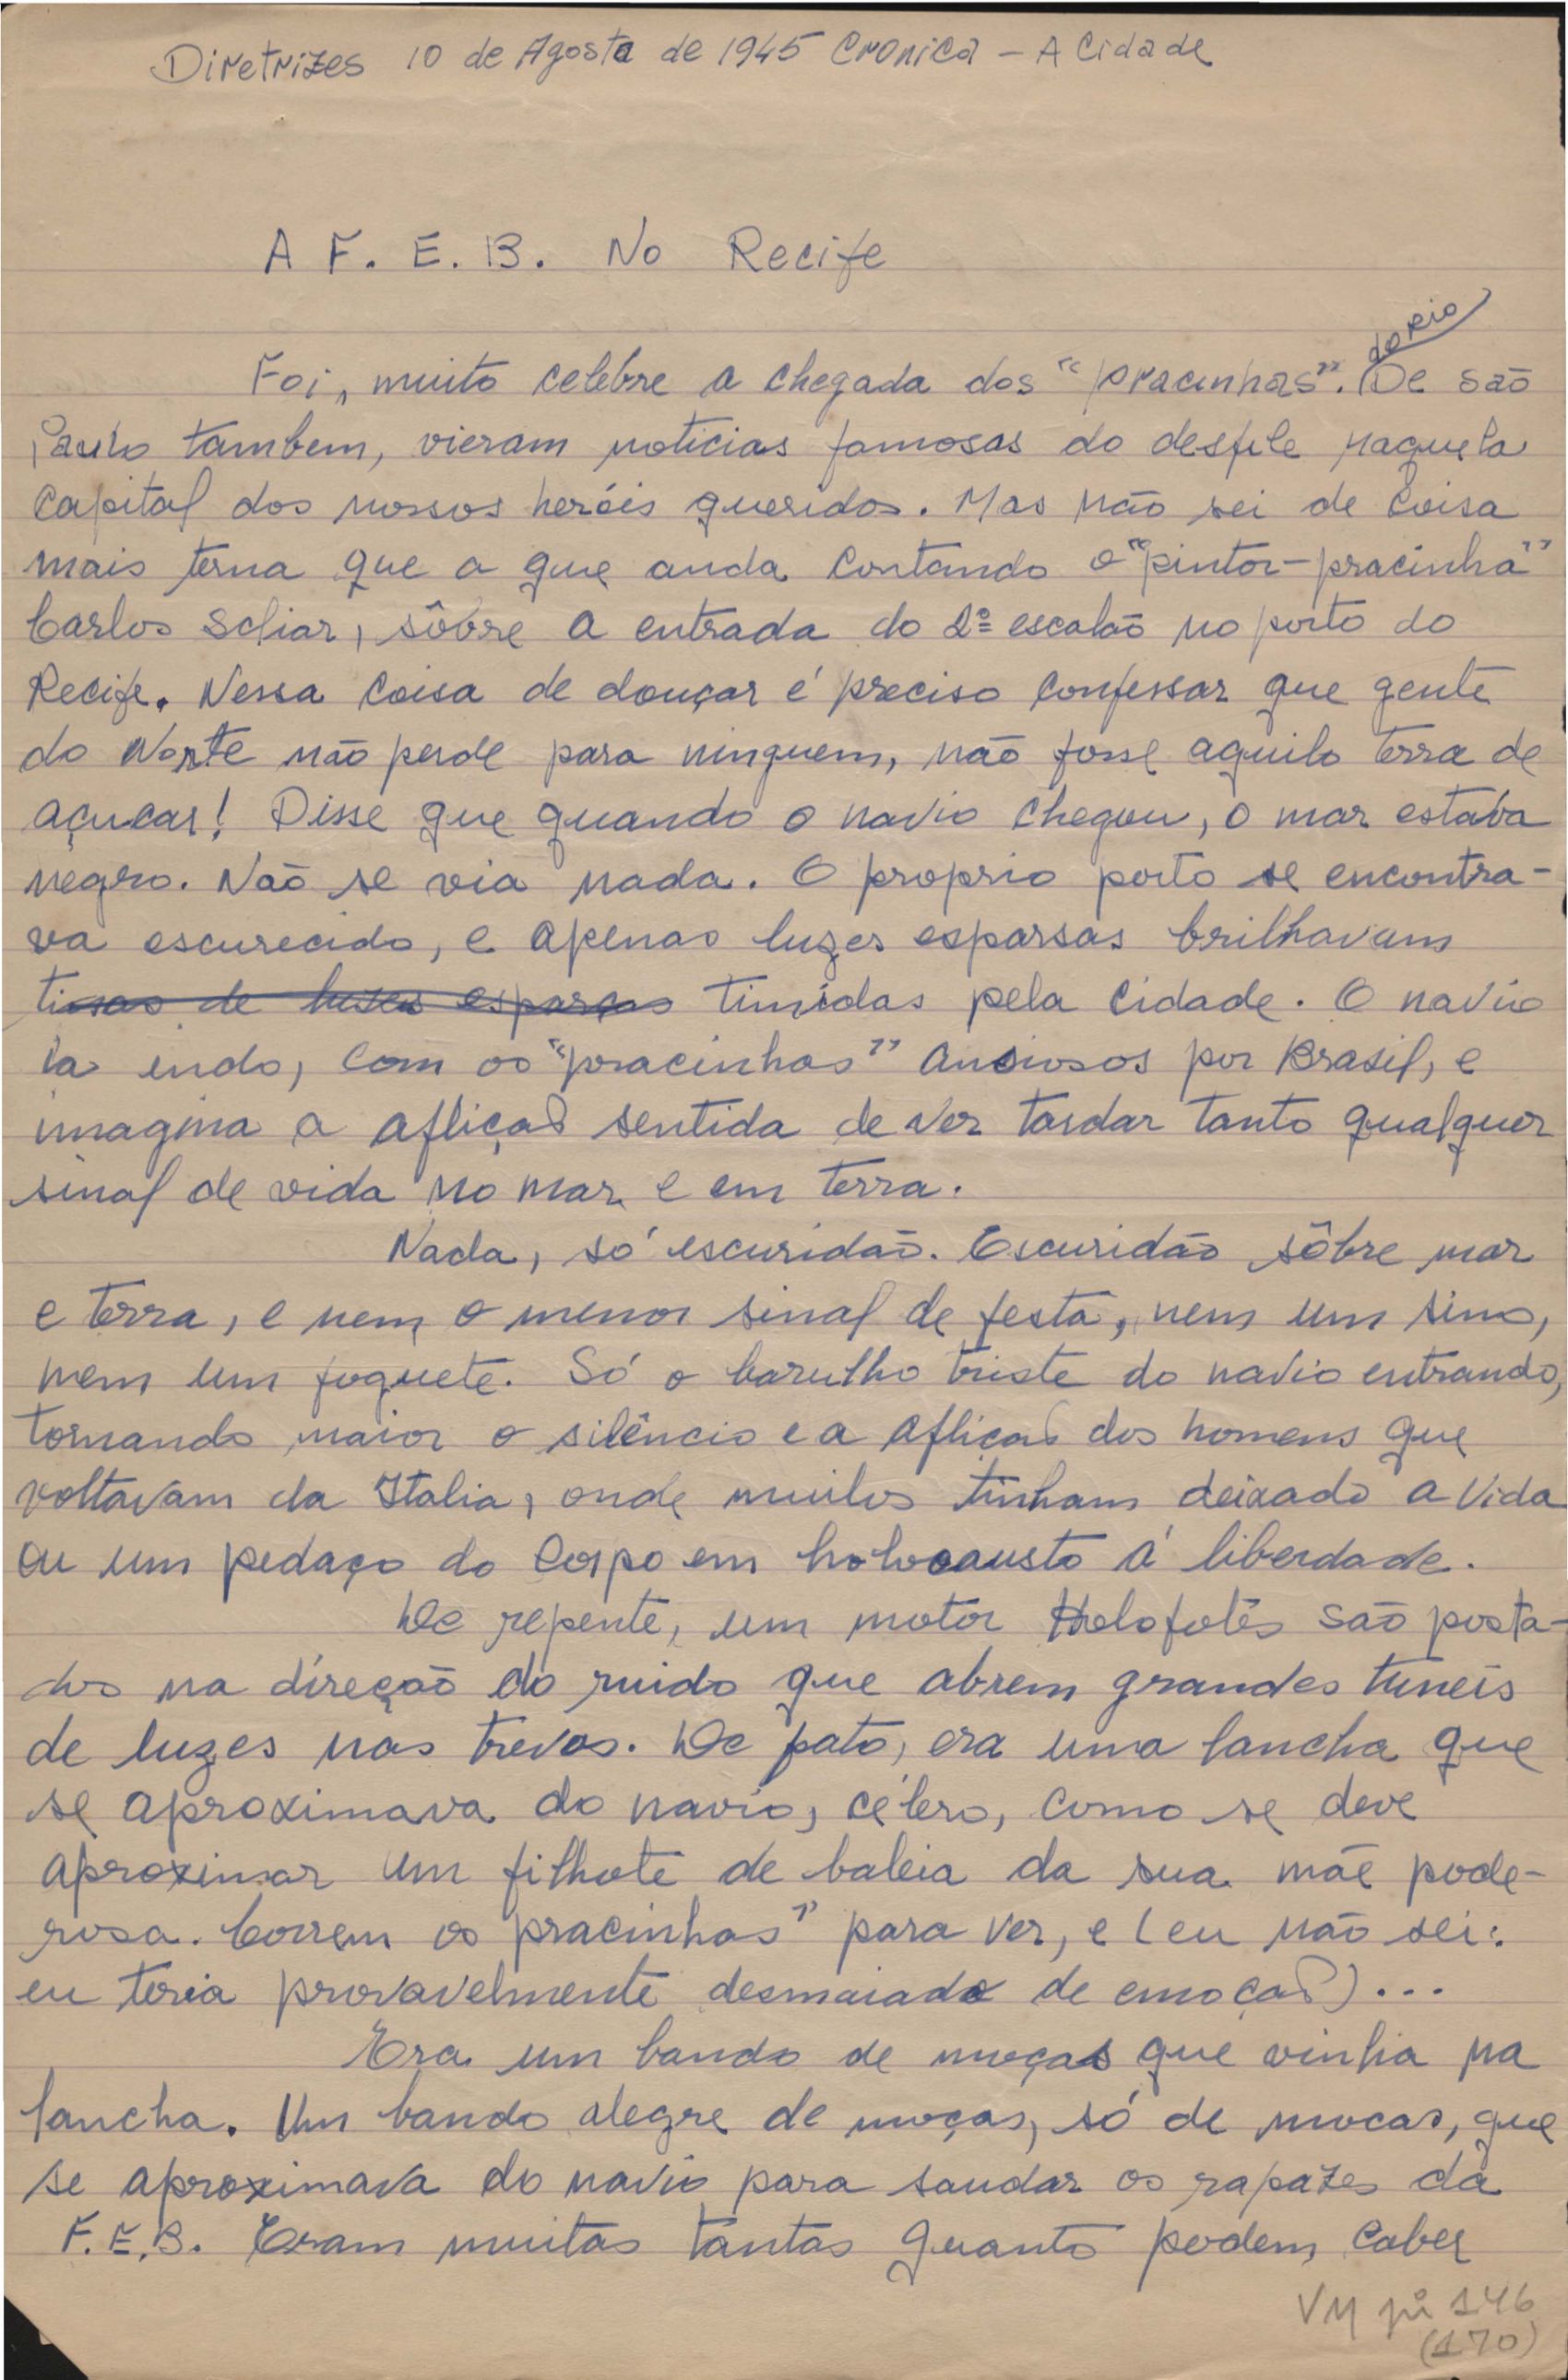 Diretrizes 10 de Agosto de 1945 Cronica - A Cidade
A F. E. B. No Recife
do Rio
Foi, muito celebre a chegada dos "pracinhas". De são
Paulo tambem, vieram noticias famosas do desfile naquela
Capital dos nossos heróis queridos. Mas não sei de coisa
mais terna que a que anda contando o "pintor-pracinha"
Carlos Scliar, sôbre a entrada do 2º escalão no porto do
Recife. Nessa coisa de douçar é preciso confessar que gente
do Norte não perde para ninguem, não fosse aquilo terra de
açucar! Disse que quando o navio chegou, o mar estava
negro. Não se via nada. O proprio porto se encontra-
va escurecido, e apenas luzes esparsas brilhavam
de luzes esparças timidas pela cidade. O navio
ia indo, com os "pracinhas" ansiosos por Brasil, e
imagina a aflição sentida de ver tardar tanto qualquer
sinal de vida no mar e em terra.
Nada, só escuridão. Escuridão sôbre mar
e terra, e nem o menor sinal de festa, nem um sino,
nem um foguete. Só o barulho triste do navio entrando,
tornando maior o silêncio e a aflição dos homens que
voltavam da Italia, onde muitos tinham deixado a vida
ou um pedaço do corpo em holocausto á liberdade.
De repente, um motor Holofotes são posta-
dos na direção do ruido que abrem grandes tuneis
de luzes nas trevas. De fato, era uma lancha que
se aproximava do navio, célero, como se deve
aproximar um filhote de baleia da sua mãe pode-
rosa. Correm os pracinhas" para ver, e (eu não sei:
eu teria provavelmente desmaiado de emoção)...
Era um bando de moças que vinha na
lancha. Um bando alegre de moças, só de mocas, que
se aproximava do navio para saudar os rapazes da
F.E.B. Eram muitas tantas quanto podem caber
VM 146
(170)